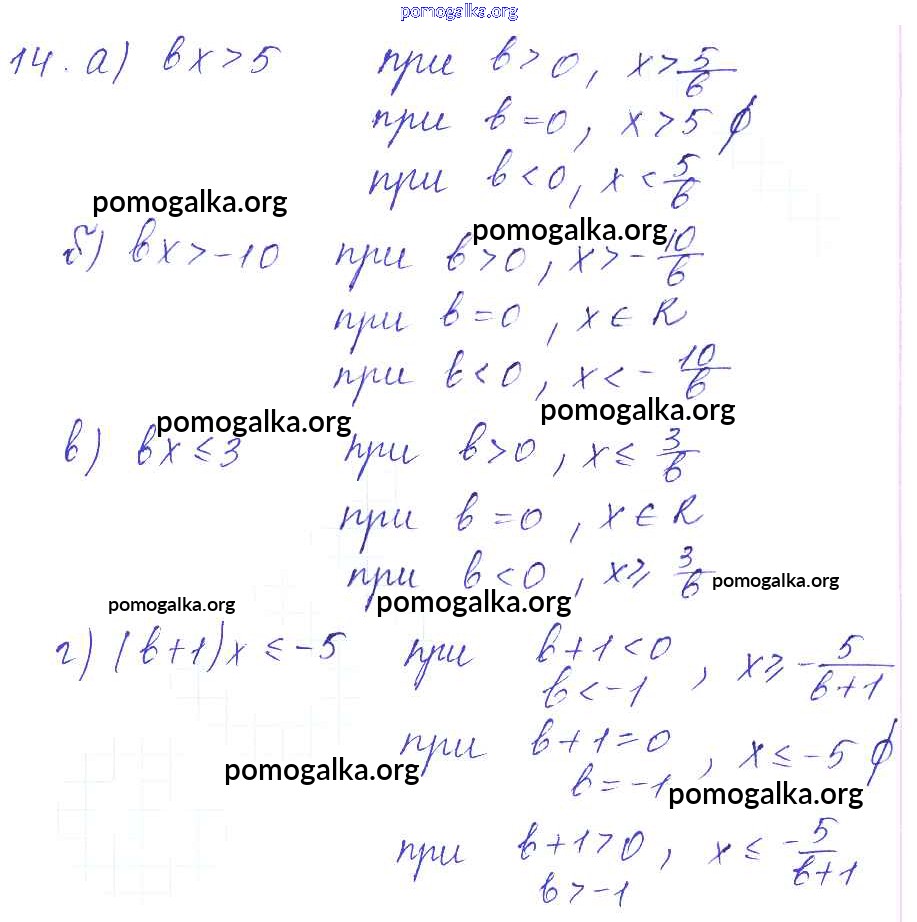 pomogalka.org
14. а) bx > 5 при b > 0, x > 5/b
при b = 0, x > 5 ∅
при b < 0, x < 5/b
pomogalka.org
pomogalka.org
б) bx > -10 при b > 0, x > -10/b
при b = 0, x ∈ R
при b < 0, x < -10/b
pomogalka.org
pomogalka.org
в) bx ≤ 3 при b > 0, x ≤ 3/b
при b = 0, x ∈ R
при b < 0, x ≥ 3/b
pomogalka.org
pomogalka.org
pomogalka.org
г) (b+1)x ≤ -5 при b+1 < 0, x ≥ -5/(b+1)
b < -1
при b+1 = 0, x ≤ -5 ∅
b = -1
pomogalka.org
pomogalka.org
при b+1 > 0, x ≤ -5/(b+1)
b > -1